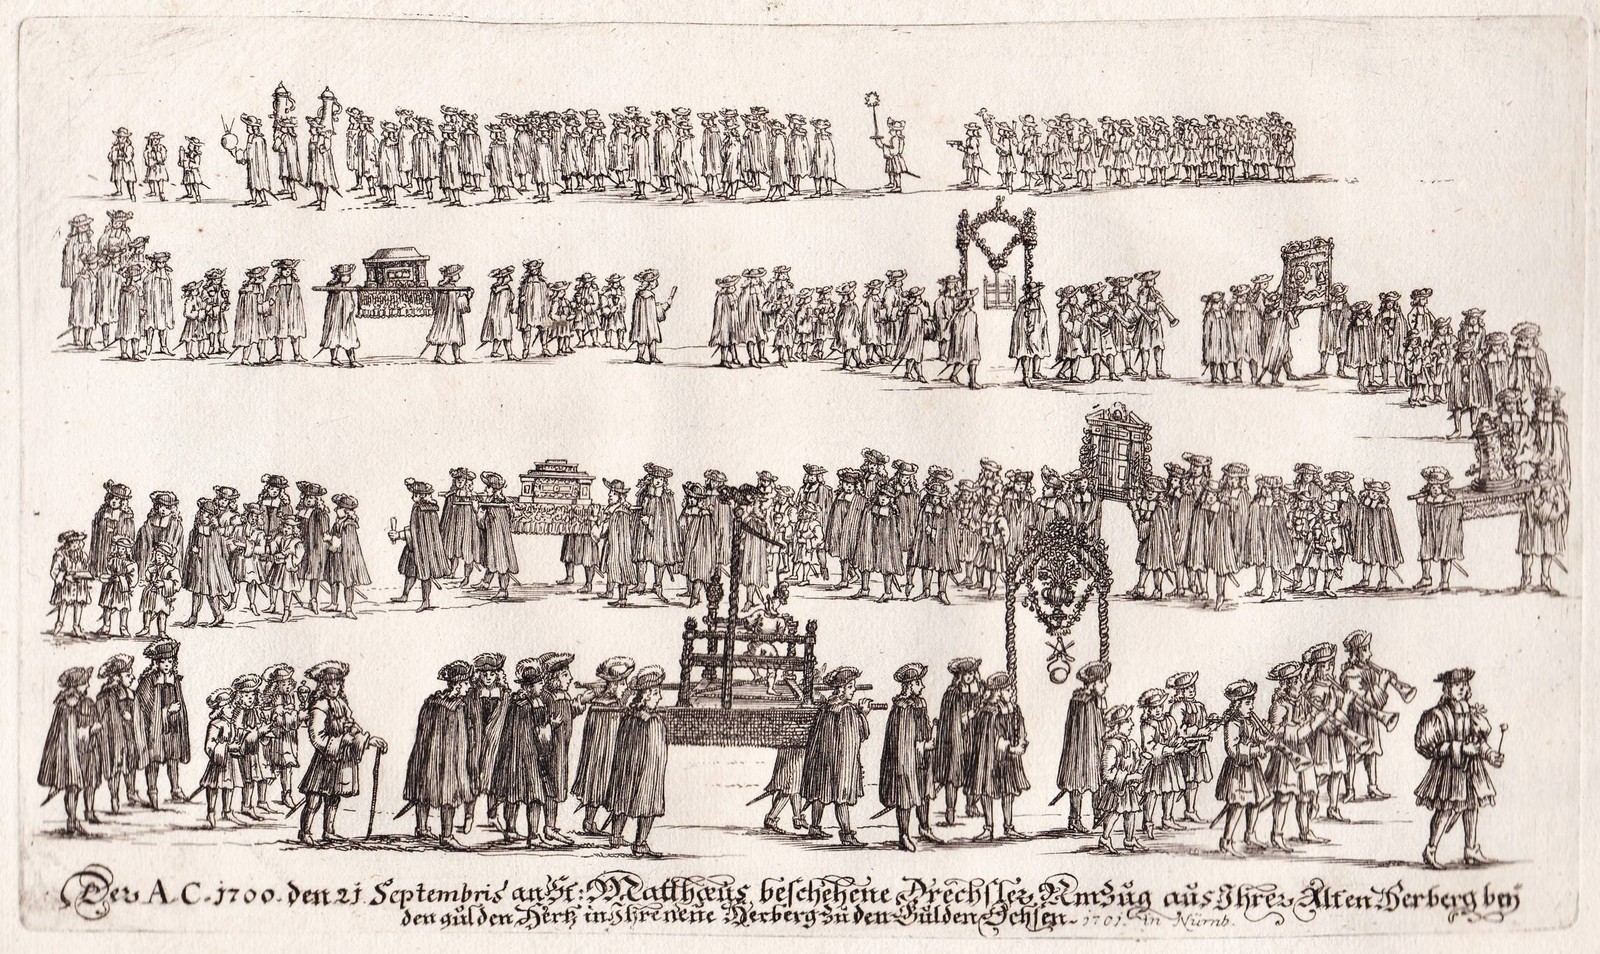 Der A. C. 1700. den 21 Septembris an St: Matthæus beschehene Drechsler Umzüg aus Ihrer Alten Herberg bey
den gulden Hertz in Ihre neue Herberg zu den Gulden Ochsen. 1701. in Nürnb.